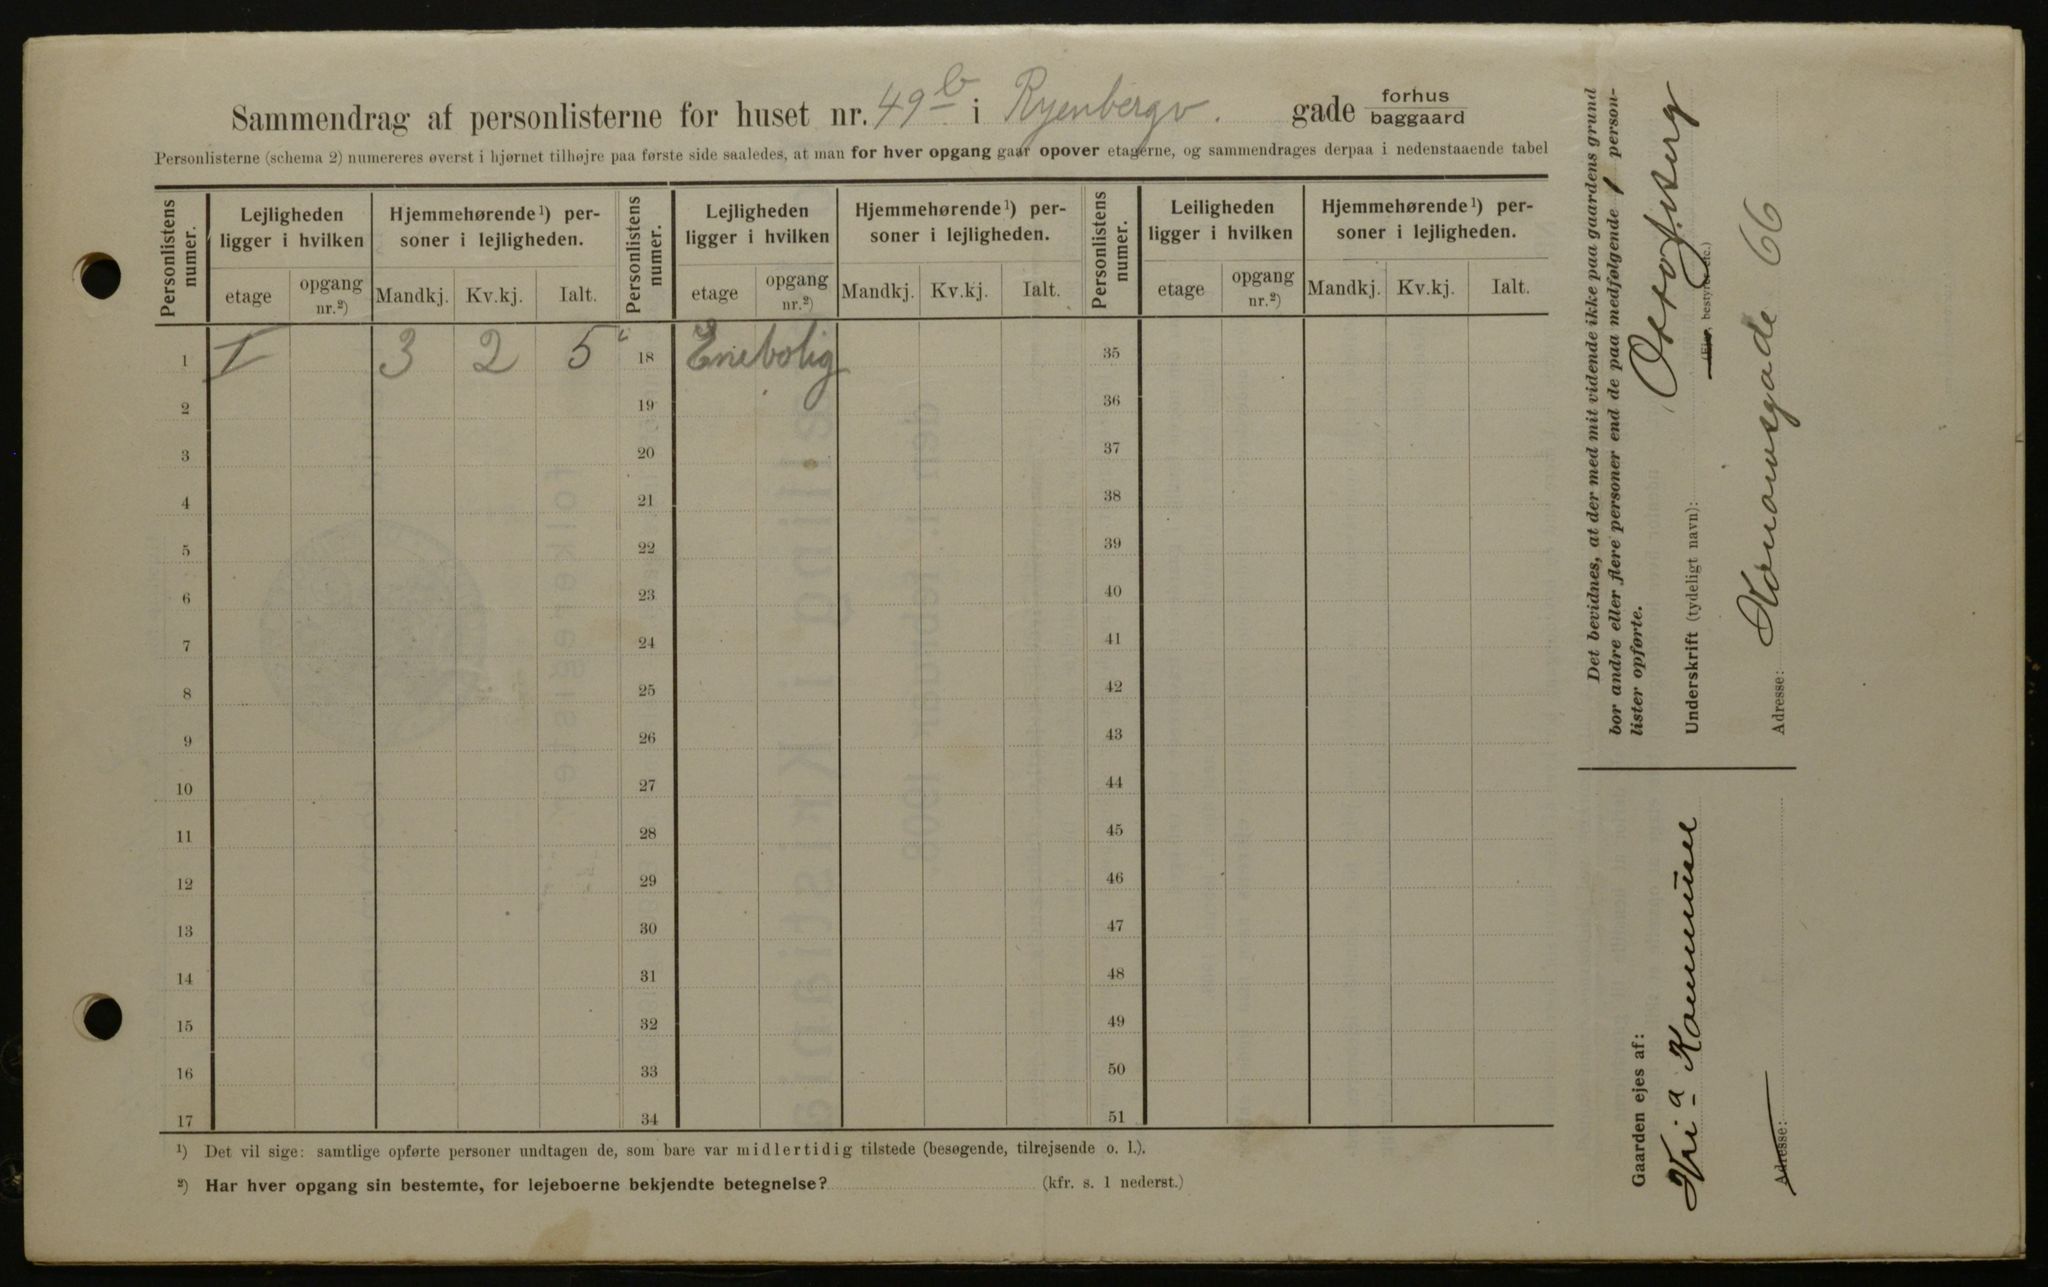 Sammendrag af personlisterne for huset nr. 49 b i Ryenbergv. gade forhus baggaard
Personlisterne (schema 2) numereres øverst i hjørnet tilhøjre paa første side saaledes, at man for hver opgang gaar opover etagerne, og sammendrages derpaa i nedenstaaende tabel
Personlistens numer. Lejligheden ligger i hvilken Hjemmehørende ¹) personer i lejligheden. Personlistens numer. Lejligheden ligger i hvilken Hjemmehørende ¹) personer i lejligheden. Personlistens numer. Leiligheden ligger i hvilken Hjemmehørende ¹) personer i lejligheden.
etage opgang nr.²) Mandkj. Kv.kj. Ialt. etage opgang nr.²) Mandkj. Kv.kj. Ialt. etage opgang nr.²) Mandkj. Kv.kj. Ialt.
1 I 3 2 5 18 Enebolig 35
2 19 36
3 20 37
4 21 38
5 22 39
6 23 40
7 24 41
8 25 42
9 26 43
10 27 44
11 28 45
12 29 46
13 30 47
14 31 48
15 32 49
16 33 50
17 34 51
¹) Det vil sige: samtlige opførte personer undtagen de, som bare var midlertidig tilstede (besøgende, tilrejsende o. l.).
²) Har hver opgang sin bestemte, for lejeboerne bekjendte betegnelse? (kfr. s. 1 nederst.)
Det bevidnes, at der med mit vidende ikke paa gaardens grund
bor andre eller flere personer end de paa medfølgende 1 person-
lister opførte.
Underskrift (tydeligt navn): Otto
(Ejer, bestyrer etc.)
Adresse: 66
Gaarden ejes af:
Kri-a Kommune
Adresse: